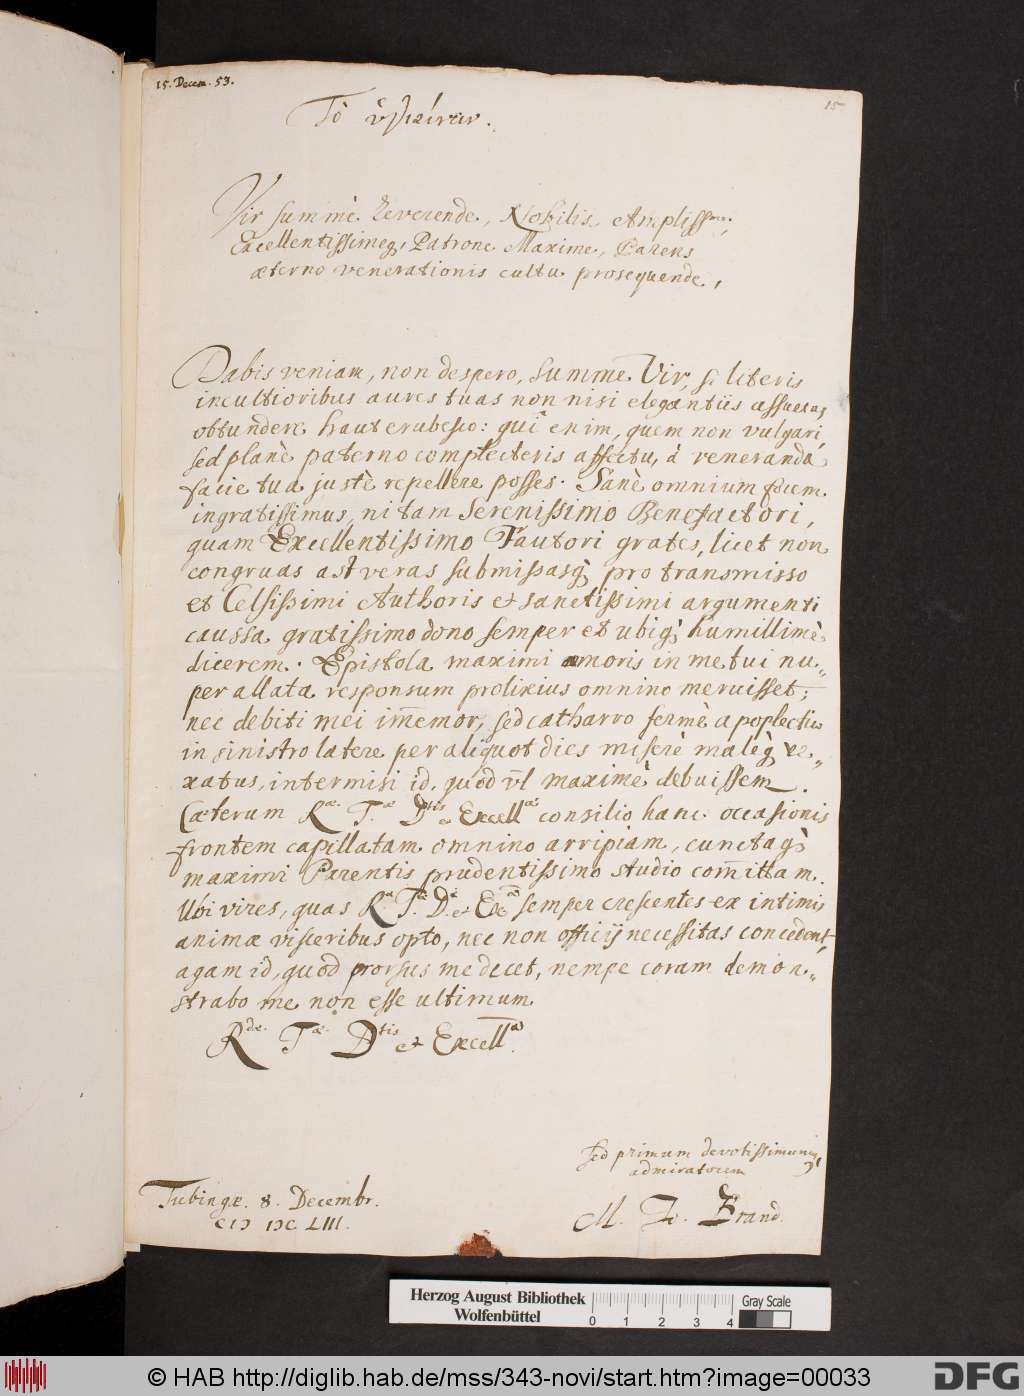 15. Decem. 53.
15
Τὸ ὑγιαίνειν.
Vir summè Reverende, Nobiliss. Ampliss.me,
Excellentissimeq, Patrone Maxime, Parens
æterno venerationis cultu prosequende,
Dabis veniam, non despero, Summe Vir, si literis
incultioribus aures tuas non nisi elegantiis assuetas
obtundere haut erubesco: qui enim, quem non vulgari,
sed planè paterno complecteris affectu, à veneranda
facie tua justè repellere posses. Sanè omnium forem
ingratissimus, ni tam Serenissimo Benefactori,
quam Excellentissimo Fautori grates, licet non
congruas ast veras submissasq; pro transmisso
et Celsissimi Authoris et sanctissimi argumenti
caussa gratissimo dono semper et ubiq; humillimè
dicerem. Epistola maximi amoris in me tui nu„
per allata responsum prolixius omnino meruisset;
nec debiti mei im̄emor, sed catharro fermè apoplectico
in sinistro latere per aliquot dies miserè maleq; ve„
xatus, intermisi id, quod vl maximè debuissem.
Cæterum R.æ T.æ D.tis et Excell.æ consilio hanc occasionis
frontem capillatam omnino arripiam, cunctaq;
maximi Parentis prudentissimo studio com̄ittam.
Ubi vires, quas R.æ T.æ D. et Exc.æ semper crescentes ex intimis
animæ visceribus opto, nec non officij necessitas concedent,
agam id, quod prorsus me decet, nempe coram demon„
strabo me non esse ultimum
R.dæ T.æ D.tis et Excell.æ
Sed primum devotissimumq;
admiratorem
Tubingæ. 8. Decembr.
CIↃ IↃC LIII.
M. Jo. Brand.
Herzog August Bibliothek
Wolfenbüttel
0 1 2 3 4
Gray Scale
© HAB http://diglib.hab.de/mss/343-novi/start.htm?image=00033
DFG